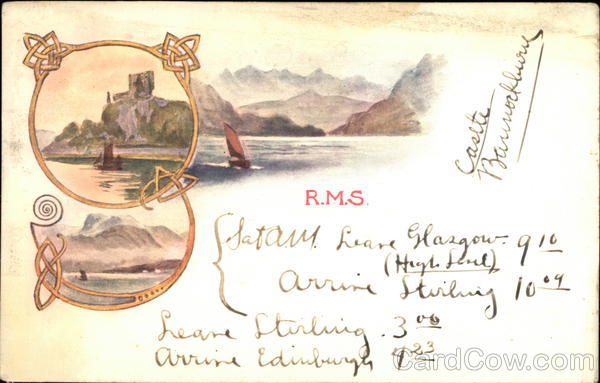 Castle
Bannockburn
R.M.S.
Sat AM. Leave Glasgow. 9 10
(High Level)
Arrive Stirling 10 09
Leave Stirling. 3 00
Arrive Edinburgh 4 23
CardCow.com